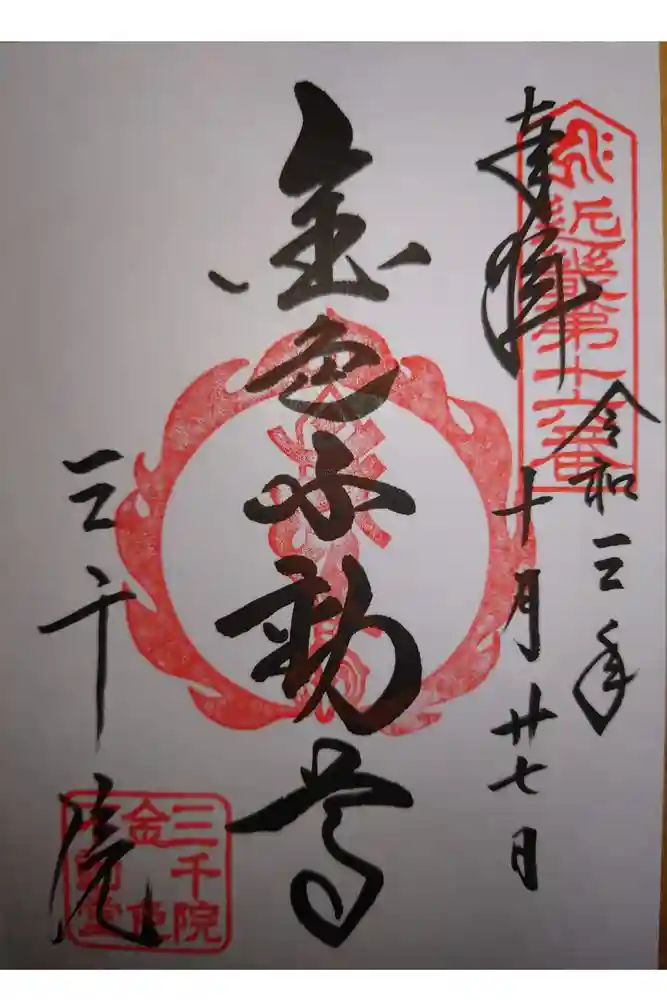 奉拝
近畿第十六番
令和三年
十月廿七日
金色不動尊
三千院
三千院
金色
不動堂